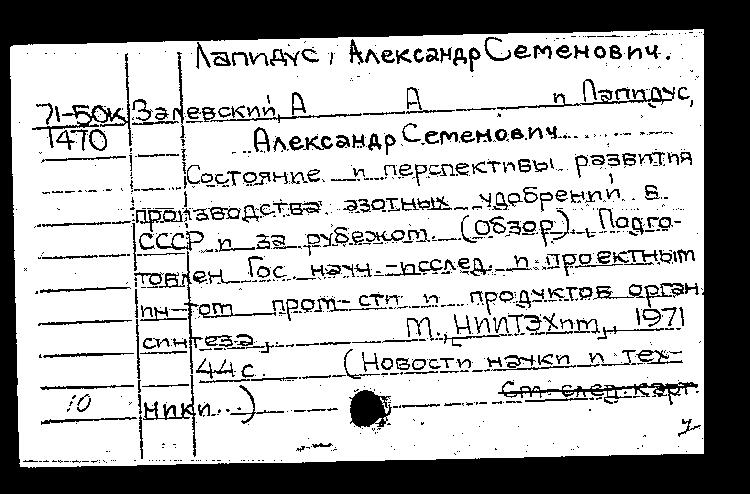 Лапидус, Александр Семенович.
71-50к Залевский, А А и Лапидус,
1470 Александр Семенович
Состояние и перспективы развития
производства азотных удобрений в
СССР и за рубежом. (Обзор). Подго-
товлен Гос. науч.-исслед. и проектным
ин-том пром-сти и продуктов орган.
синтеза. М., НИИТЭХим, 1971
44 с. (Новости науки и тех-
См. след. карт.
10 ники...)